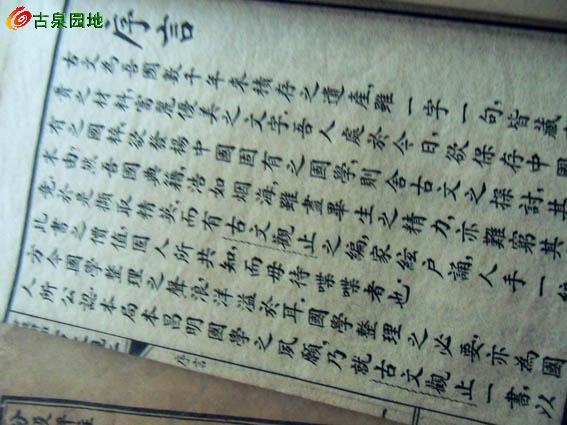 古泉园地
序言
古文為吾國數千年來精存之遺產,雖一字一句,皆藏
貴之材料,富麗優美之文字,吾人處於今日,欲保存中國
有之國粹,欲發揚中國固有之國學,則舍古文之探討,其
末由,然吾國典籍,浩如烟海,雖盡畢生之精力,亦難窮其
竟,於是擷取精英,而有古文觀止之編,家絃戶誦,人手一編
此書之價值,固人所共知,而毋待喋喋者也
方今國學整理之聲浪,洋溢於耳,國學整理之必要,亦為國
人所公認,本局本昌明國學之夙願,乃就古文觀止一書,以
序言
一